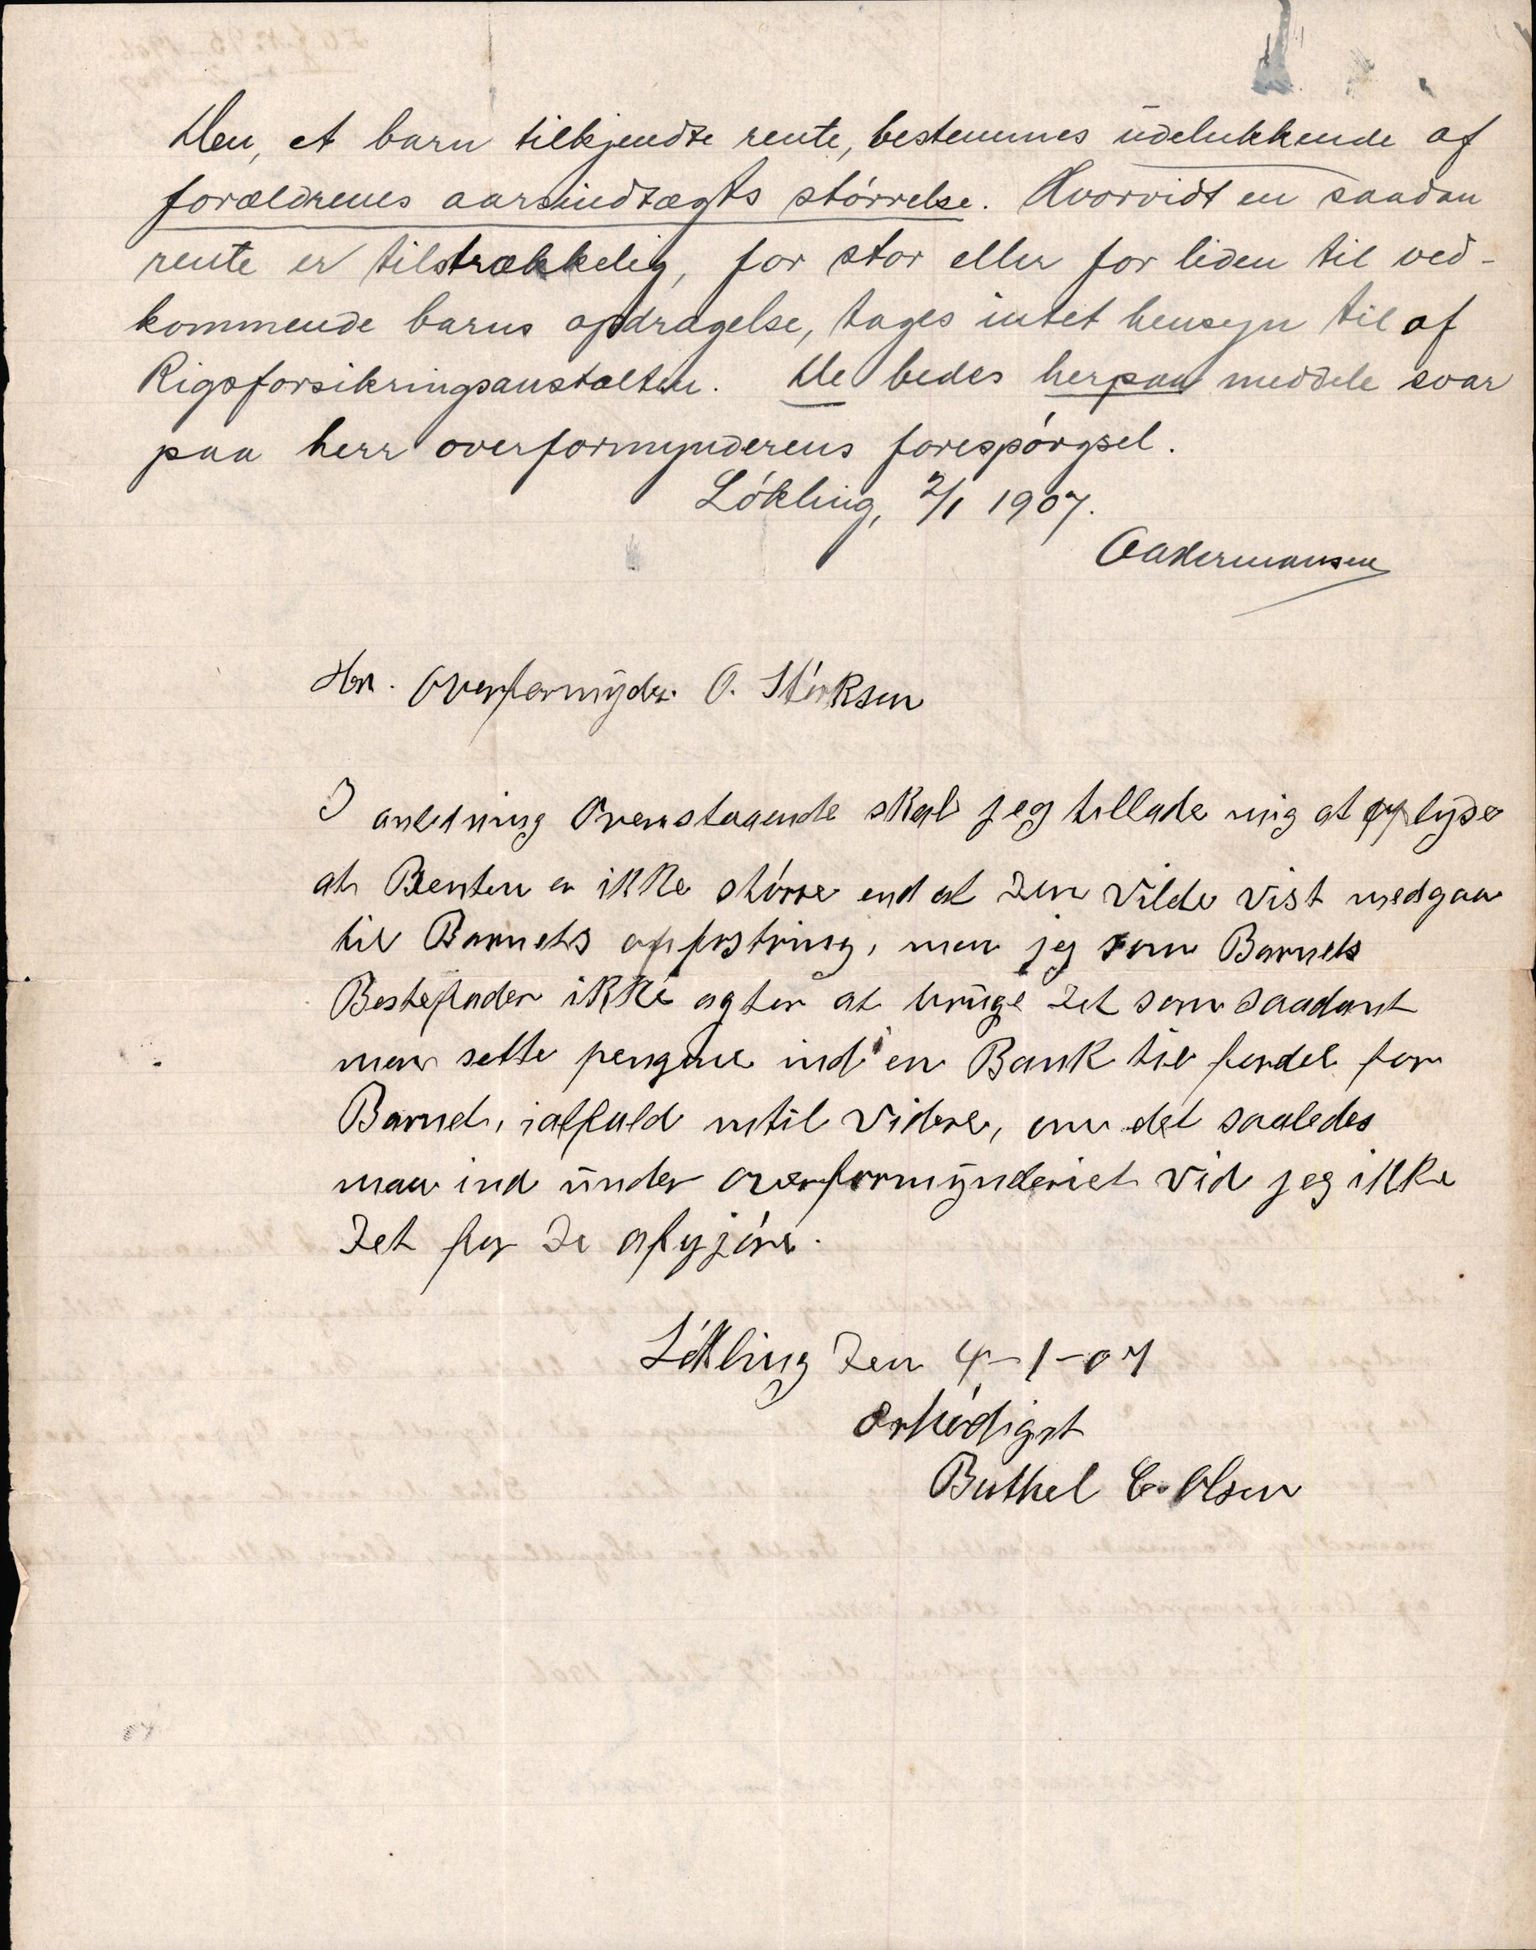 Den, et barn tilkjendte rente, bestemmes udelukkende af
forældrenes aarsindtægts størrelse. Hvorvidt en saadan
rente er tilstrækkelig, for stor eller for liden til ved-
kommende barns opdragelse, tages intet hensyn til af
Rigsforsikringsanstalten. De bedes herpaa meddele svar
paa herr overformynderens forespørgsel.
Løkling, 2/1 1907.
Hr. Overformyder O. Størksen
I anledning Ovenstaaende skal jeg tillade mig at oplyse
at Renten er ikke større end at den vilde vist medgaa
til Barnets opfostring, men jeg som Barnets
Bestefader ikke agter at bruge det som saadant
men sette pengene ind i en Bank til fordel for
Barnet, ialfald intil videre, om det saaledes
maa ind under overformynderiet vid jeg ikke
det for De afgjøre.
Løkling den 4-1-07
ærbødigst
Buthel C. Olsen